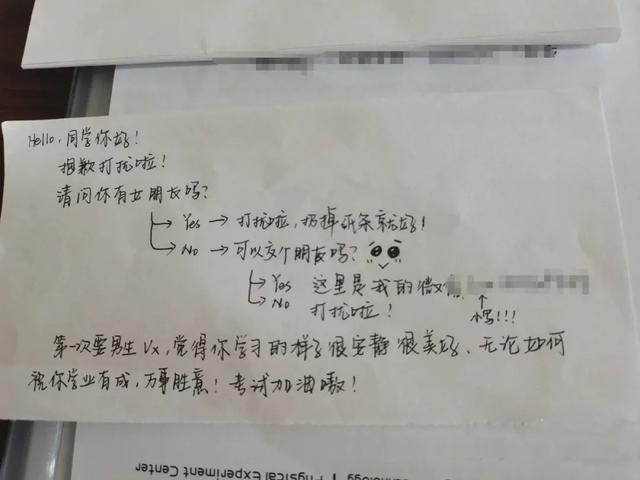 Hello,同学你好!
抱歉打扰啦!
请问你有女朋友吗?
Yes → 打扰啦,扔掉纸条就好!
No → 可以交个朋友吗?
Yes 这里是我的微信
No 打扰啦!
小写!!!
第一次要男生Vx,觉得你学习的样子很安静很美好、无论如何
祝你学业有成,万事胜意!考试加油嗷!
Physical Experiment Center